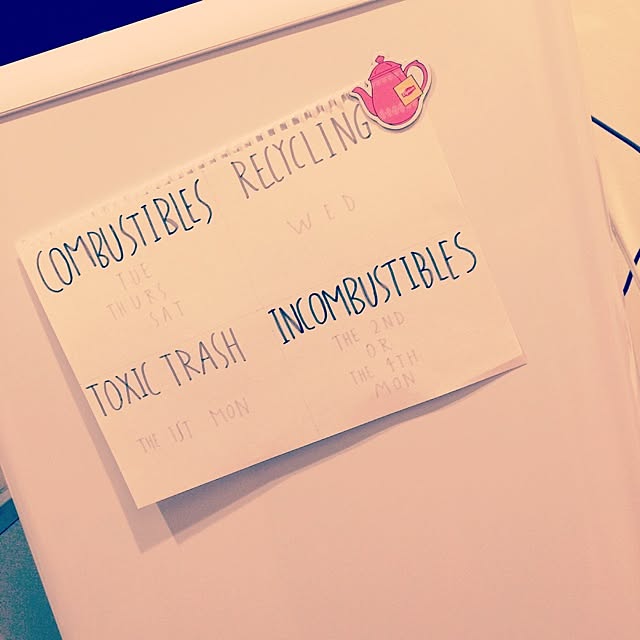 COMBUSTIBLES
TUE
THURS
SAT
RECYCLING
WED
TOXIC TRASH
THE 1ST MON
INCOMBUSTIBLES
THE 2ND
OR
THE 4TH
MON